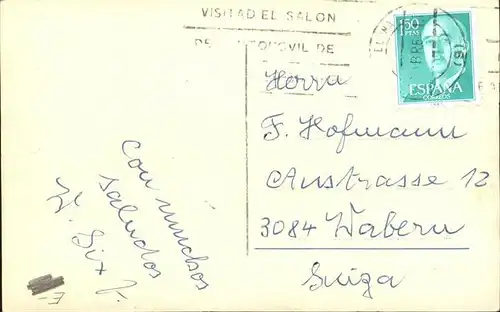 VISITAD EL SALON
DE
1'50
PTAS
ESPAÑA
CORREOS
(9)
Herrn
F. Hofmann
Austrasse 12
3084 Wabern
Suiza
Con muchos
saludos
W. Six f.
E-